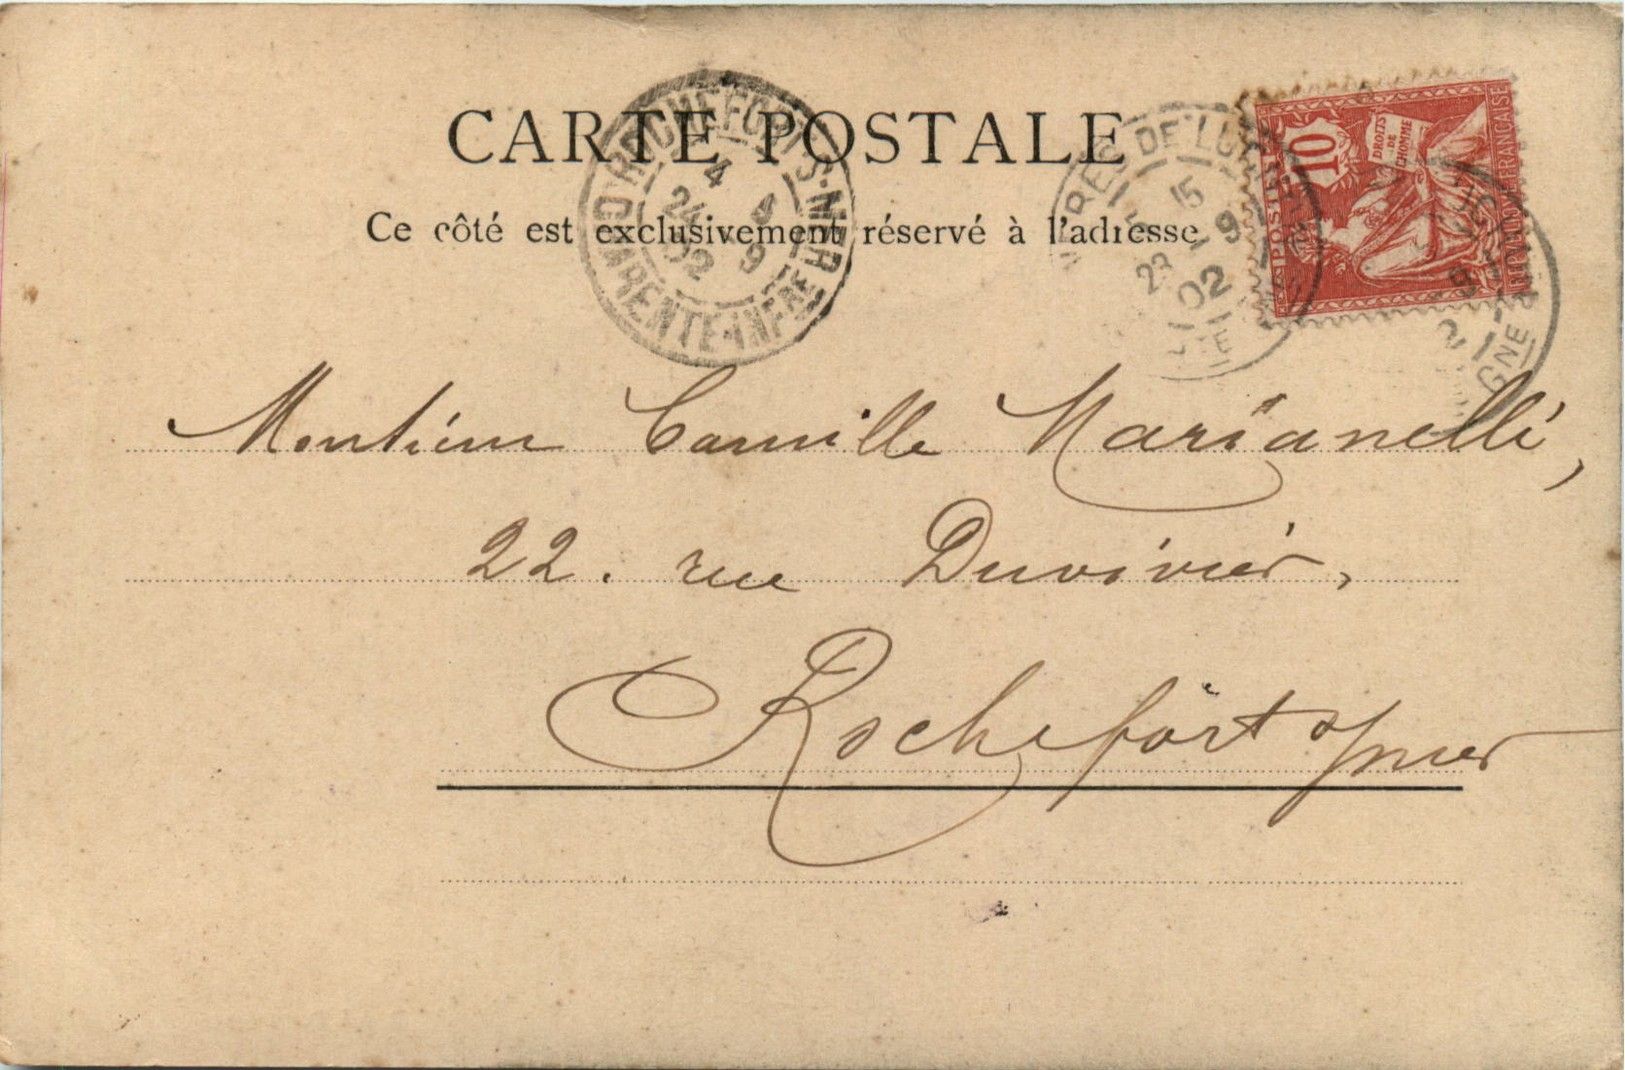 CARTE POSTALE
Ce côté est exclusivement réservé à l'adresse
ROCHEFORT-S-MER
4 4
24 9
02
CHARENTE-INFRE
DE
15
23 9
02
10
DROITS
DE
L'HOMME
POSTES
REPUBLIQUE FRANÇAISE
GNE
Monsieur Camille Marianelli,
22. rue Duvivier,
Rochefort s/mer